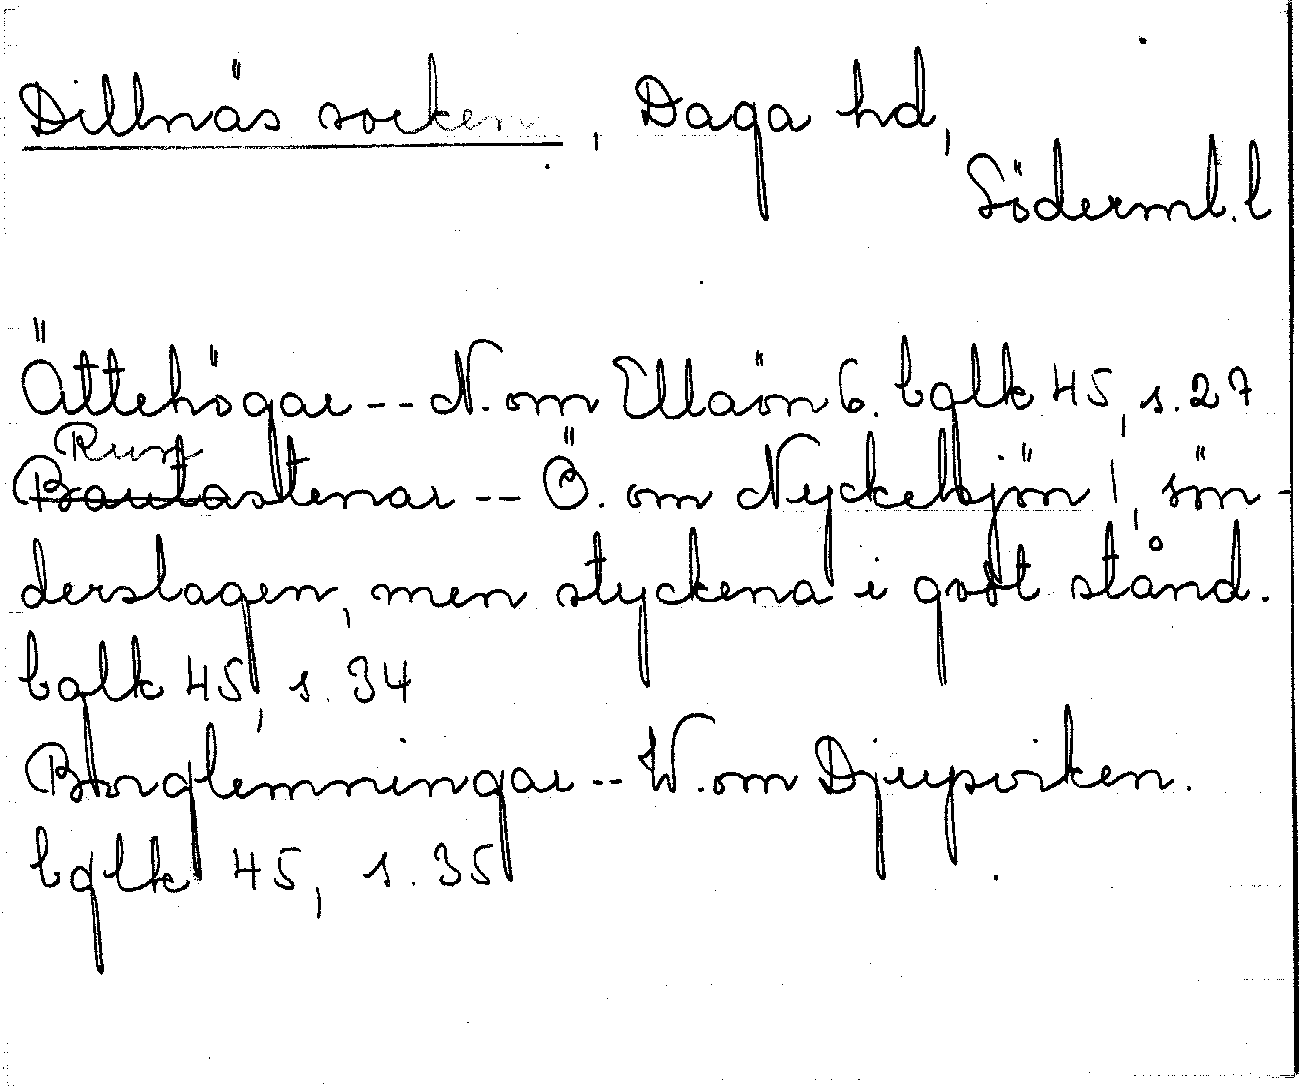 Dillnäs socken, Daga hd,
Söderml. l
Ättehögar -- N. om Ellaön 6. bglk 45, s. 27
Run
Bautastenar -- Ö. om Nyckelsjön 1, sön-
derslagen, men styckena i godt stånd.
bglk 45, s. 34
Borglemningar -- W. om Djupviken.
bglk 45, s. 35